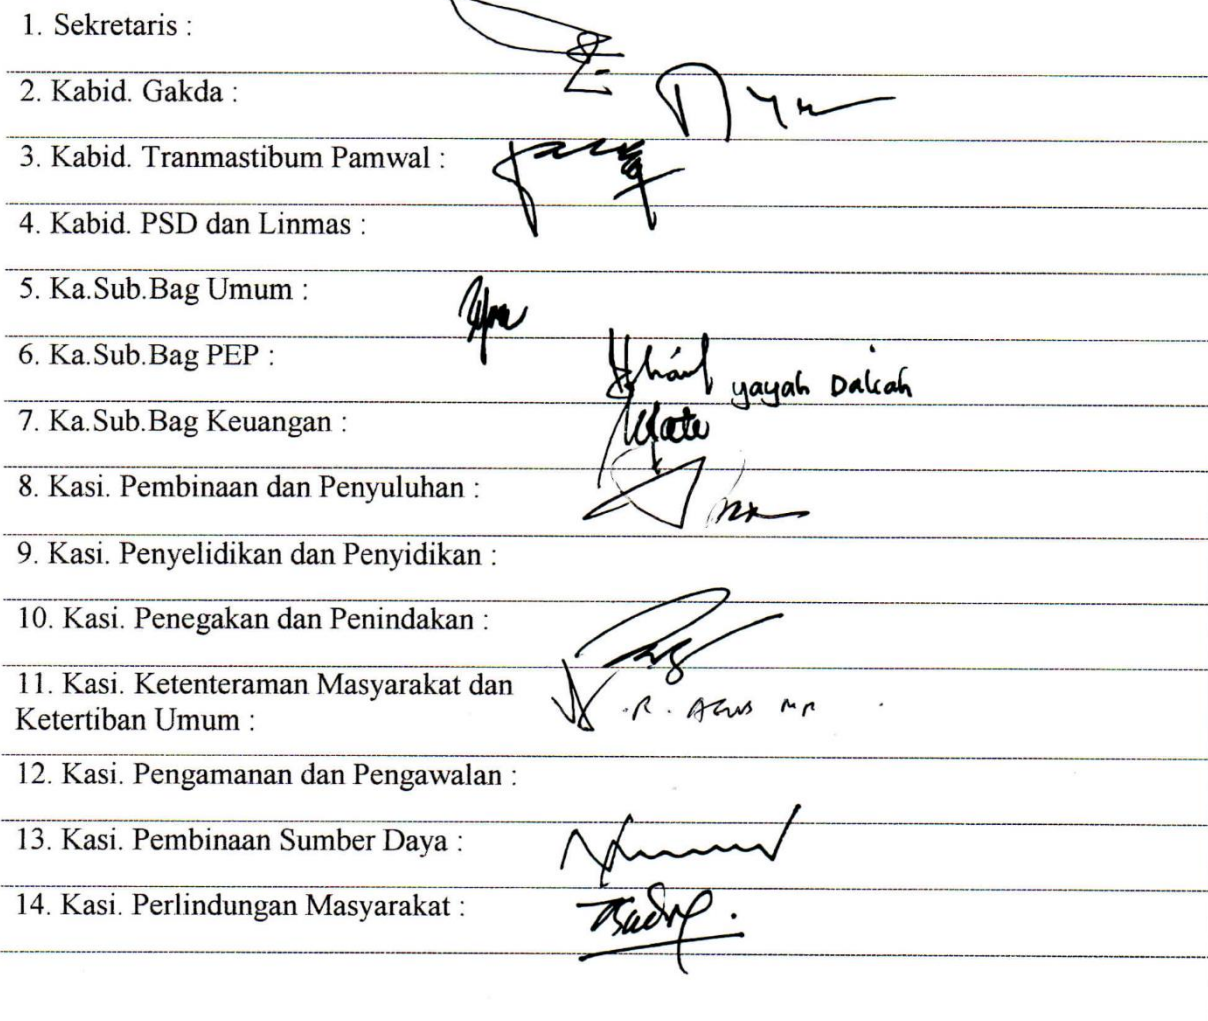 1. Sekretaris :
2. Kabid. Gakda :
3. Kabid. Tranmastibum Pamwal :
4. Kabid. PSD dan Linmas :
5. Ka.Sub.Bag Umum :
6. Ka.Sub.Bag PEP :
yayah
7. Ka.Sub.Bag Keuangan :
8. Kasi. Pembinaan dan Penyuluhan :
9. Kasi. Penyelidikan dan Penyidikan :
10. Kasi. Penegakan dan Penindakan :
11. Kasi. Ketenteraman Masyarakat dan
R. AGUS
Ketertiban Umum :
12. Kasi. Pengamanan dan Pengawalan :
13. Kasi. Pembinaan Sumber Daya :
14. Kasi. Perlindungan Masyarakat :